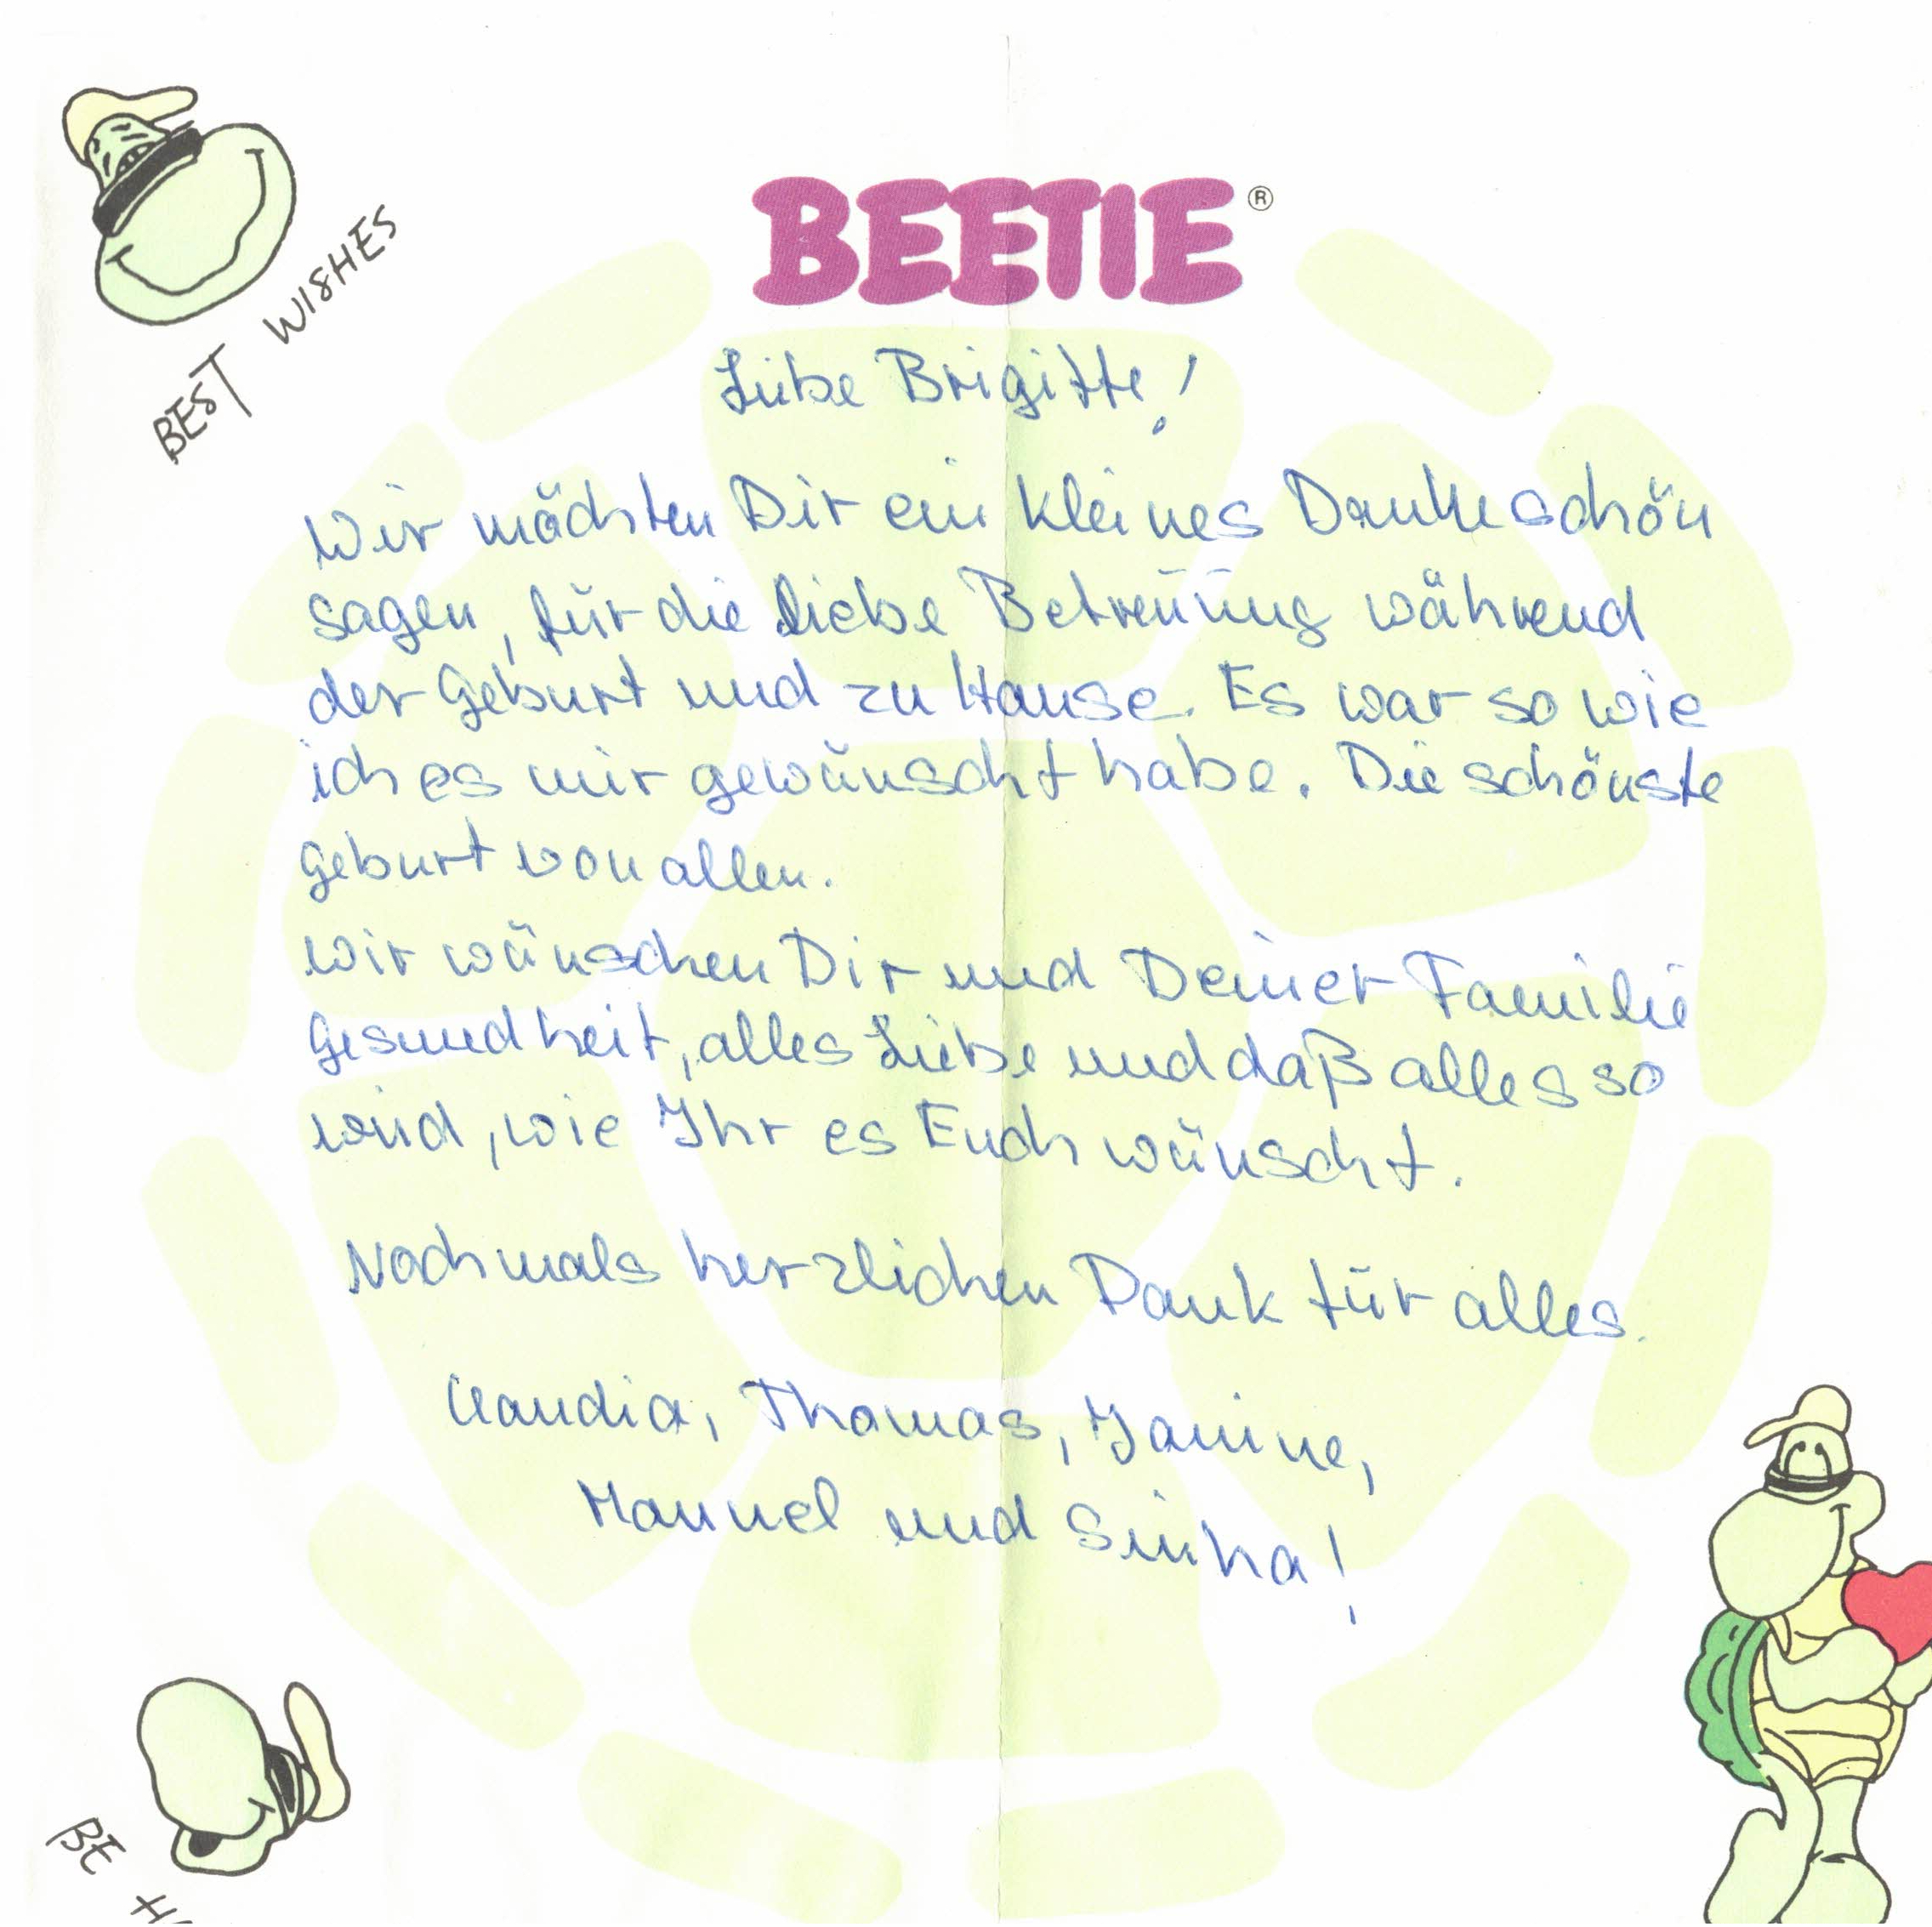 BEST WISHES
BEETIE®
Liebe Brigitte!
Wir möchten Dir ein kleines Dankeschön
sagen, für die liebe Betreuung während
der Geburt und zu Hause. Es war so wie
ich es mir gewünscht habe. Die schönste
Geburt von allen.
Wir wünschen Dir und Deiner Familie
Gesundheit, alles Liebe und daß alles so
wird, wie Ihr es Euch wünscht.
Nochmals herzlichen Dank für alles.
Claudia, Thomas, Janine,
Manuel und Sinha!
BE